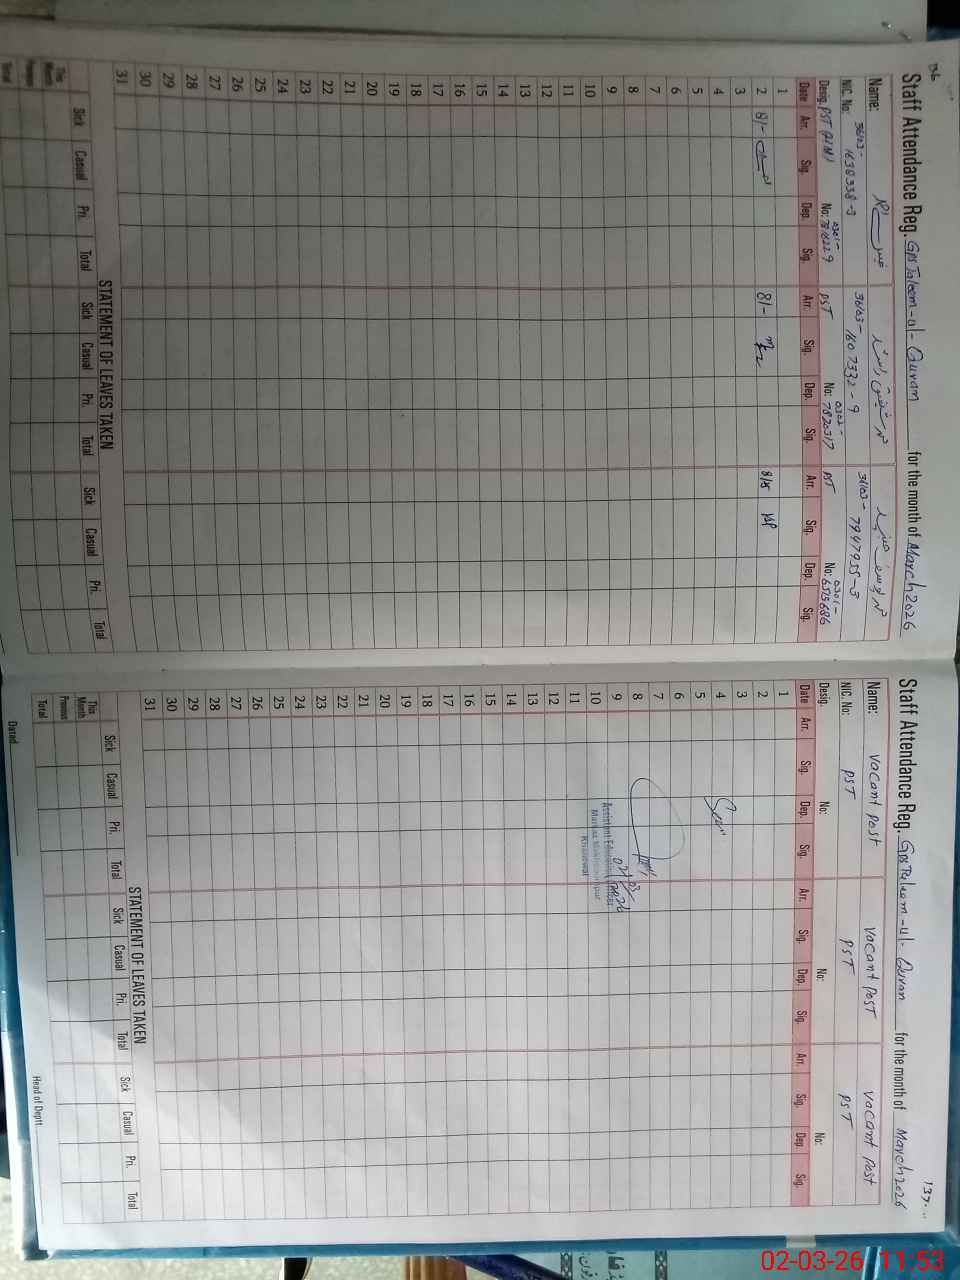 136
Staff Attendance Reg. Gps Taleem-ul-Quran for the month of March 2026
Name: محمد شفیق راشد محمد یوسف
NIC. No: 36103-1638338-3 36103-1607332-9 36103-7947955-3
Desig. PST (H.M) No: 0301-7816229 PST No: 0302-7820317 PST No: 0301-6515686
Date Arr. Sig. Dep. Sig. Arr. Sig. Dep. Sig. Arr. Sig. Dep. Sig.
1
2 8/- 8/- 8/5
3
4
5
6
7
8
9
10
11
12
13
14
15
16
17
18
19
20
21
22
23
24
25
26
27
28
29
30
31
STATEMENT OF LEAVES TAKEN
Sick Casual Pri. Total Sick Casual Pri. Total Sick Casual Pri. Total
This Month
Previous
Total
137
Staff Attendance Reg. Gps Taleem-ul-Quran for the month of March 2026
Name: Vacant Post Vacant Post Vacant Post
NIC. No: PST PST PST
Desig. No: No: No:
Date Arr. Sig. Dep. Sig. Arr. Sig. Dep. Sig. Arr. Sig. Dep Sig.
1
2
3
4 Seen
5
6
7
8
9 02/03/2026
10 Assistant Education Officer
Markaz
Khanewal
11
12
13
14
15
16
17
18
19
20
21
22
23
24
25
26
27
28
29
30
31
STATEMENT OF LEAVES TAKEN
Sick Casual Pri. Total Sick Casual Pri. Total Sick Casual Pri. Total
This Month
Previous
Total
Dated Head of Deptt
02-03-26 11:53